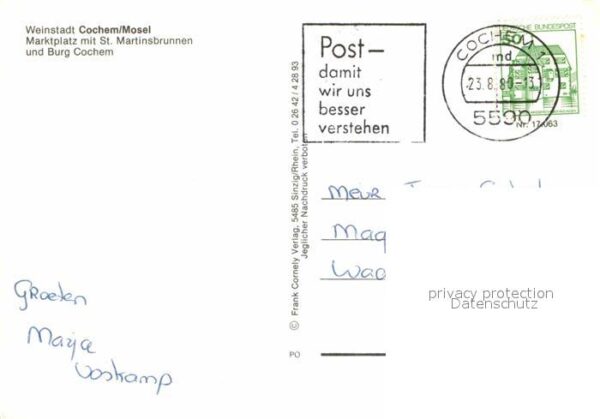 Weinstadt Cochem/Mosel
Marktplatz mit St. Martinsbrunnen
und Burg Cochem
Post-
damit
wir uns
besser
verstehen
COCHEM 1
md
23.8.80-13
5590
DEUTSCHE BUNDESPOST
50
Nr. 17.063
© Frank Cornely Verlag, 5485 Sinzig/Rhein, Tel. 0 26 42 / 4 28 93
Jeglicher Nachdruck verboten
PO
Meur
Maq
Waa
privacy protection
Datenschutz
Groeten
Marja
Voskamp